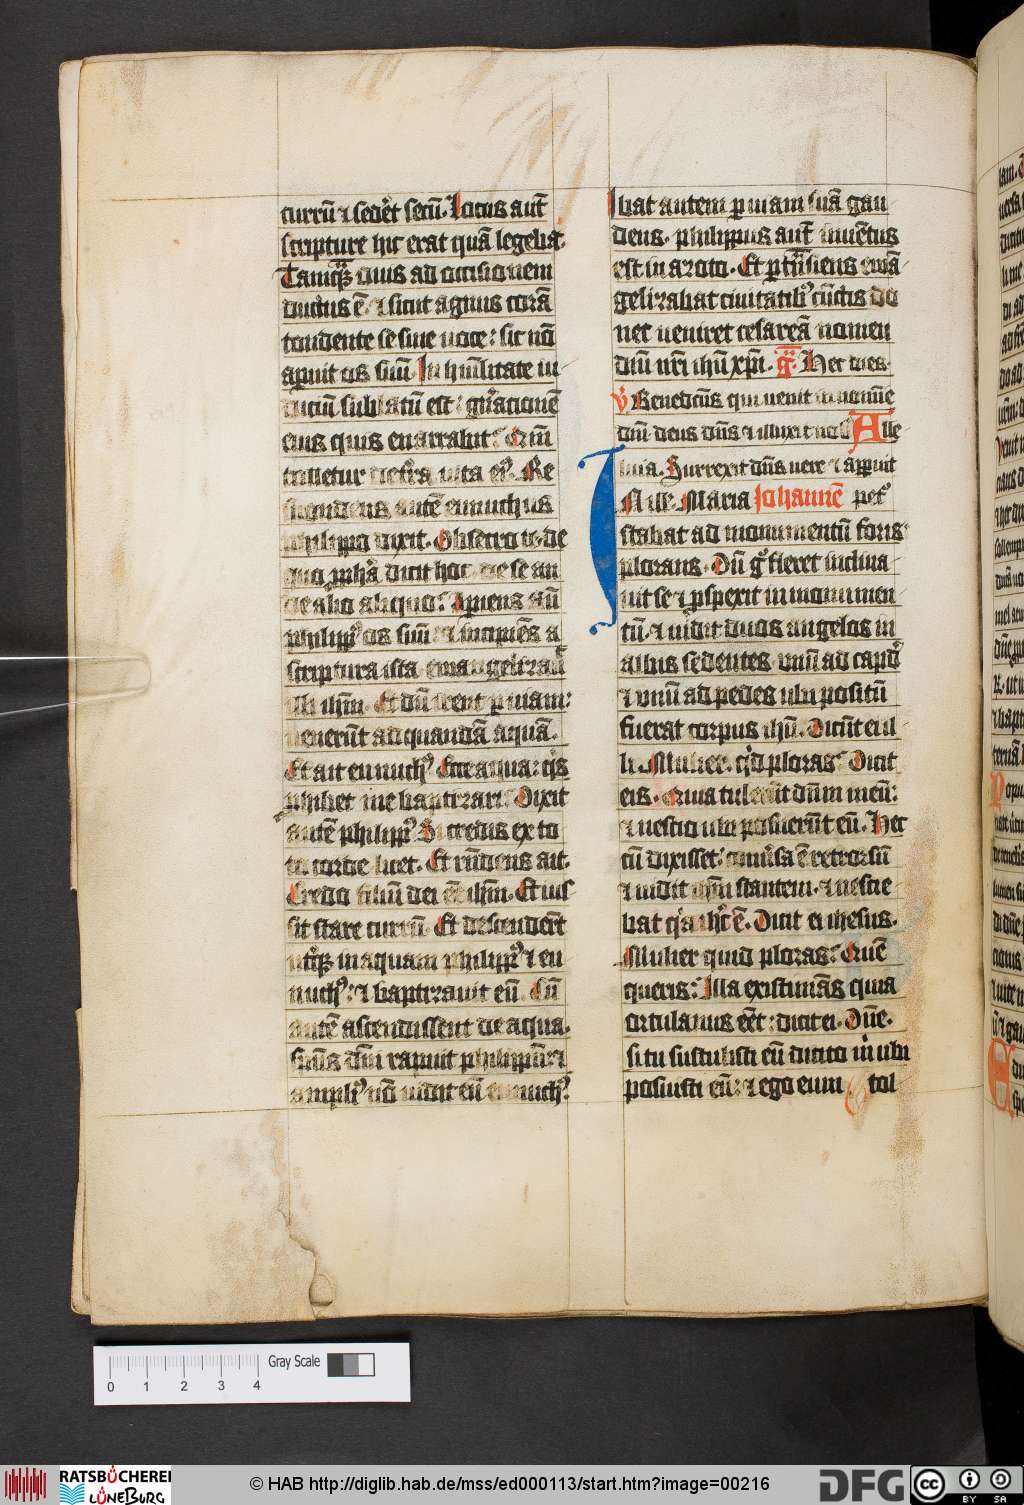 currū ⁊ sedet secū. Locus aut̄
scripture hic erat quā legebat.
Tamq̄ ouis ad occisionem
ductus ē. ⁊ sicut agnus corā
tondente se sine uoce: sic nō
aperuit os suū. In hūilitate iu
diciū sublatū est: gn̄acionē
eius quis enarrabit? Qm̄
tolletur de tr̄a uita eiꝰ. Re
spondens autē eunuchus
philippo dixit. Obsecro te. de
quo ꝓph̄a dicit hoc. de se an
de alio aliquo? Aperiens aūt
philippꝰ os suū. ⁊ incipiēs a
scriptura ista. ewangelizauit
illi ihm̄. Et dū irent ꝑ uiam:
uenerūt ad quandā aquā.
Et ait eunuchꝰ. Ecce aqua: qis
phibet me baptizari? Dixit
autē philippꝰ Si credis ex to
to corde licet. Et rn̄dens ait.
Credo filiū dei eē ihm̄. Et ius
sit stare currū. Et descenderūt
utrq̄ in aquam philippꝰ ⁊ eu
nuchꝰ: ⁊ baptizauit eū. Cū
autē ascendissent de aqua.
spūs dn̄i rapuit philippū: ⁊
ampliꝰ nō uidit eū eunuchꝰ.
Ibat autem ꝑ uiam suā gau
dens. philippus aut̄ inuētus
est in azoto. Et ꝑtn̄siens ewā
gelizabat ciuitatibꝰ cūctis do
nec ueniret cesareā nomen
dn̄i nr̄i ihū xp̄i. gͣ Hec dies.
v̓ Benedictus qui uenit in nomīe
dn̄i. deus dn̄s ⁊ illuxit nob̄ Alle
luia. Surrexit dn̄s uere ⁊ apparuit
In ille. Maria Johannē pet̓
stabat ad monumentū foris
plorans. Dū gͦ fleret inclina
uit se ⁊ ꝓspexit in monumen
tū. ⁊ uidit duos angelos in
albis sedentes. unū ad capud
⁊ unū ad pedes ubi positū
fuerat corpus ihū. Dicūt ei il
li. Mulier. qid ploras? Dicit
eis. Quia tulerūt dn̄m meū:
⁊ nescio ubi posuerūt eū. Hec
cū dixisset. cōuersa ē retrorsū
⁊ uidit ihm̄ stantem. ⁊ nescie
bat qia ihc̄ ē. Dicit ei ihesus.
Mulier quid ploras? Quē
queris? Illa existimās quia
ortulanus eēt: dicit ei. Dn̄e.
si tu sustulisti eū dicito m̄ ubi
posuisti eū: ⁊ ego eum tol
0 1 2 3 4 Gray Scale
RATSBÜCHEREI
LÜNEBURG
© HAB http://diglib.hab.de/mss/ed000113/start.htm?image=00216
DFG
cc BY SA